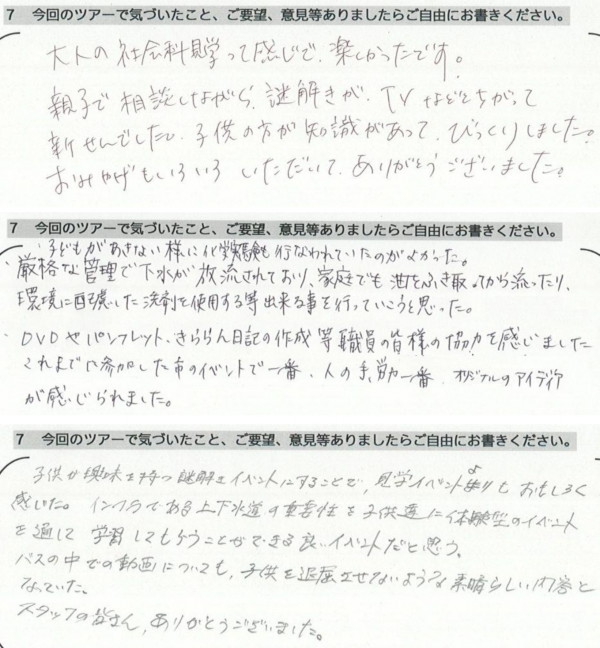 7 今回のツアーで気づいたこと、ご要望、意見等ありましたらご自由にお書きください。
大人の社会科見学って感じで、楽しかったです。
親子で相談しながら、謎解きが、TVなどとちがって
新せんでした。子供の方が知識があって、びっくりしました。
おみやげもいろいろいただいて、ありがとうございました。
7 今回のツアーで気づいたこと、ご要望、意見等ありましたらご自由にお書きください。
・子どもがあきない様に化学実験も行なわれていたのがよかった。
・厳格な管理で下水が放流されており、家庭でも油をふき取ってから流したり、
環境に配慮した洗剤を使用する等出来る事を行っていこうと思った。
・DVDやパンフレット、きららん日記の作成等職員の皆様の協力を感じました
これまでに参加した市のイベントで一番、人の手、労力一番、オリジナルのアイディア
が感じられました。
7 今回のツアーで気づいたこと、ご要望、意見等ありましたらご自由にお書きください。
子供が興味を持つ謎解きイベントにすることで、見学イベントよりもおもしろく
感いた。インフラである上下水道の重要性を子供達に体験型のイベント
を通して学習してもらうことができる良いイベントだと思う。
バスの中での動画についても、子供を退屈させないような素晴らしい内容と
なっていた。
スタッフの皆さん、ありがとうございました。